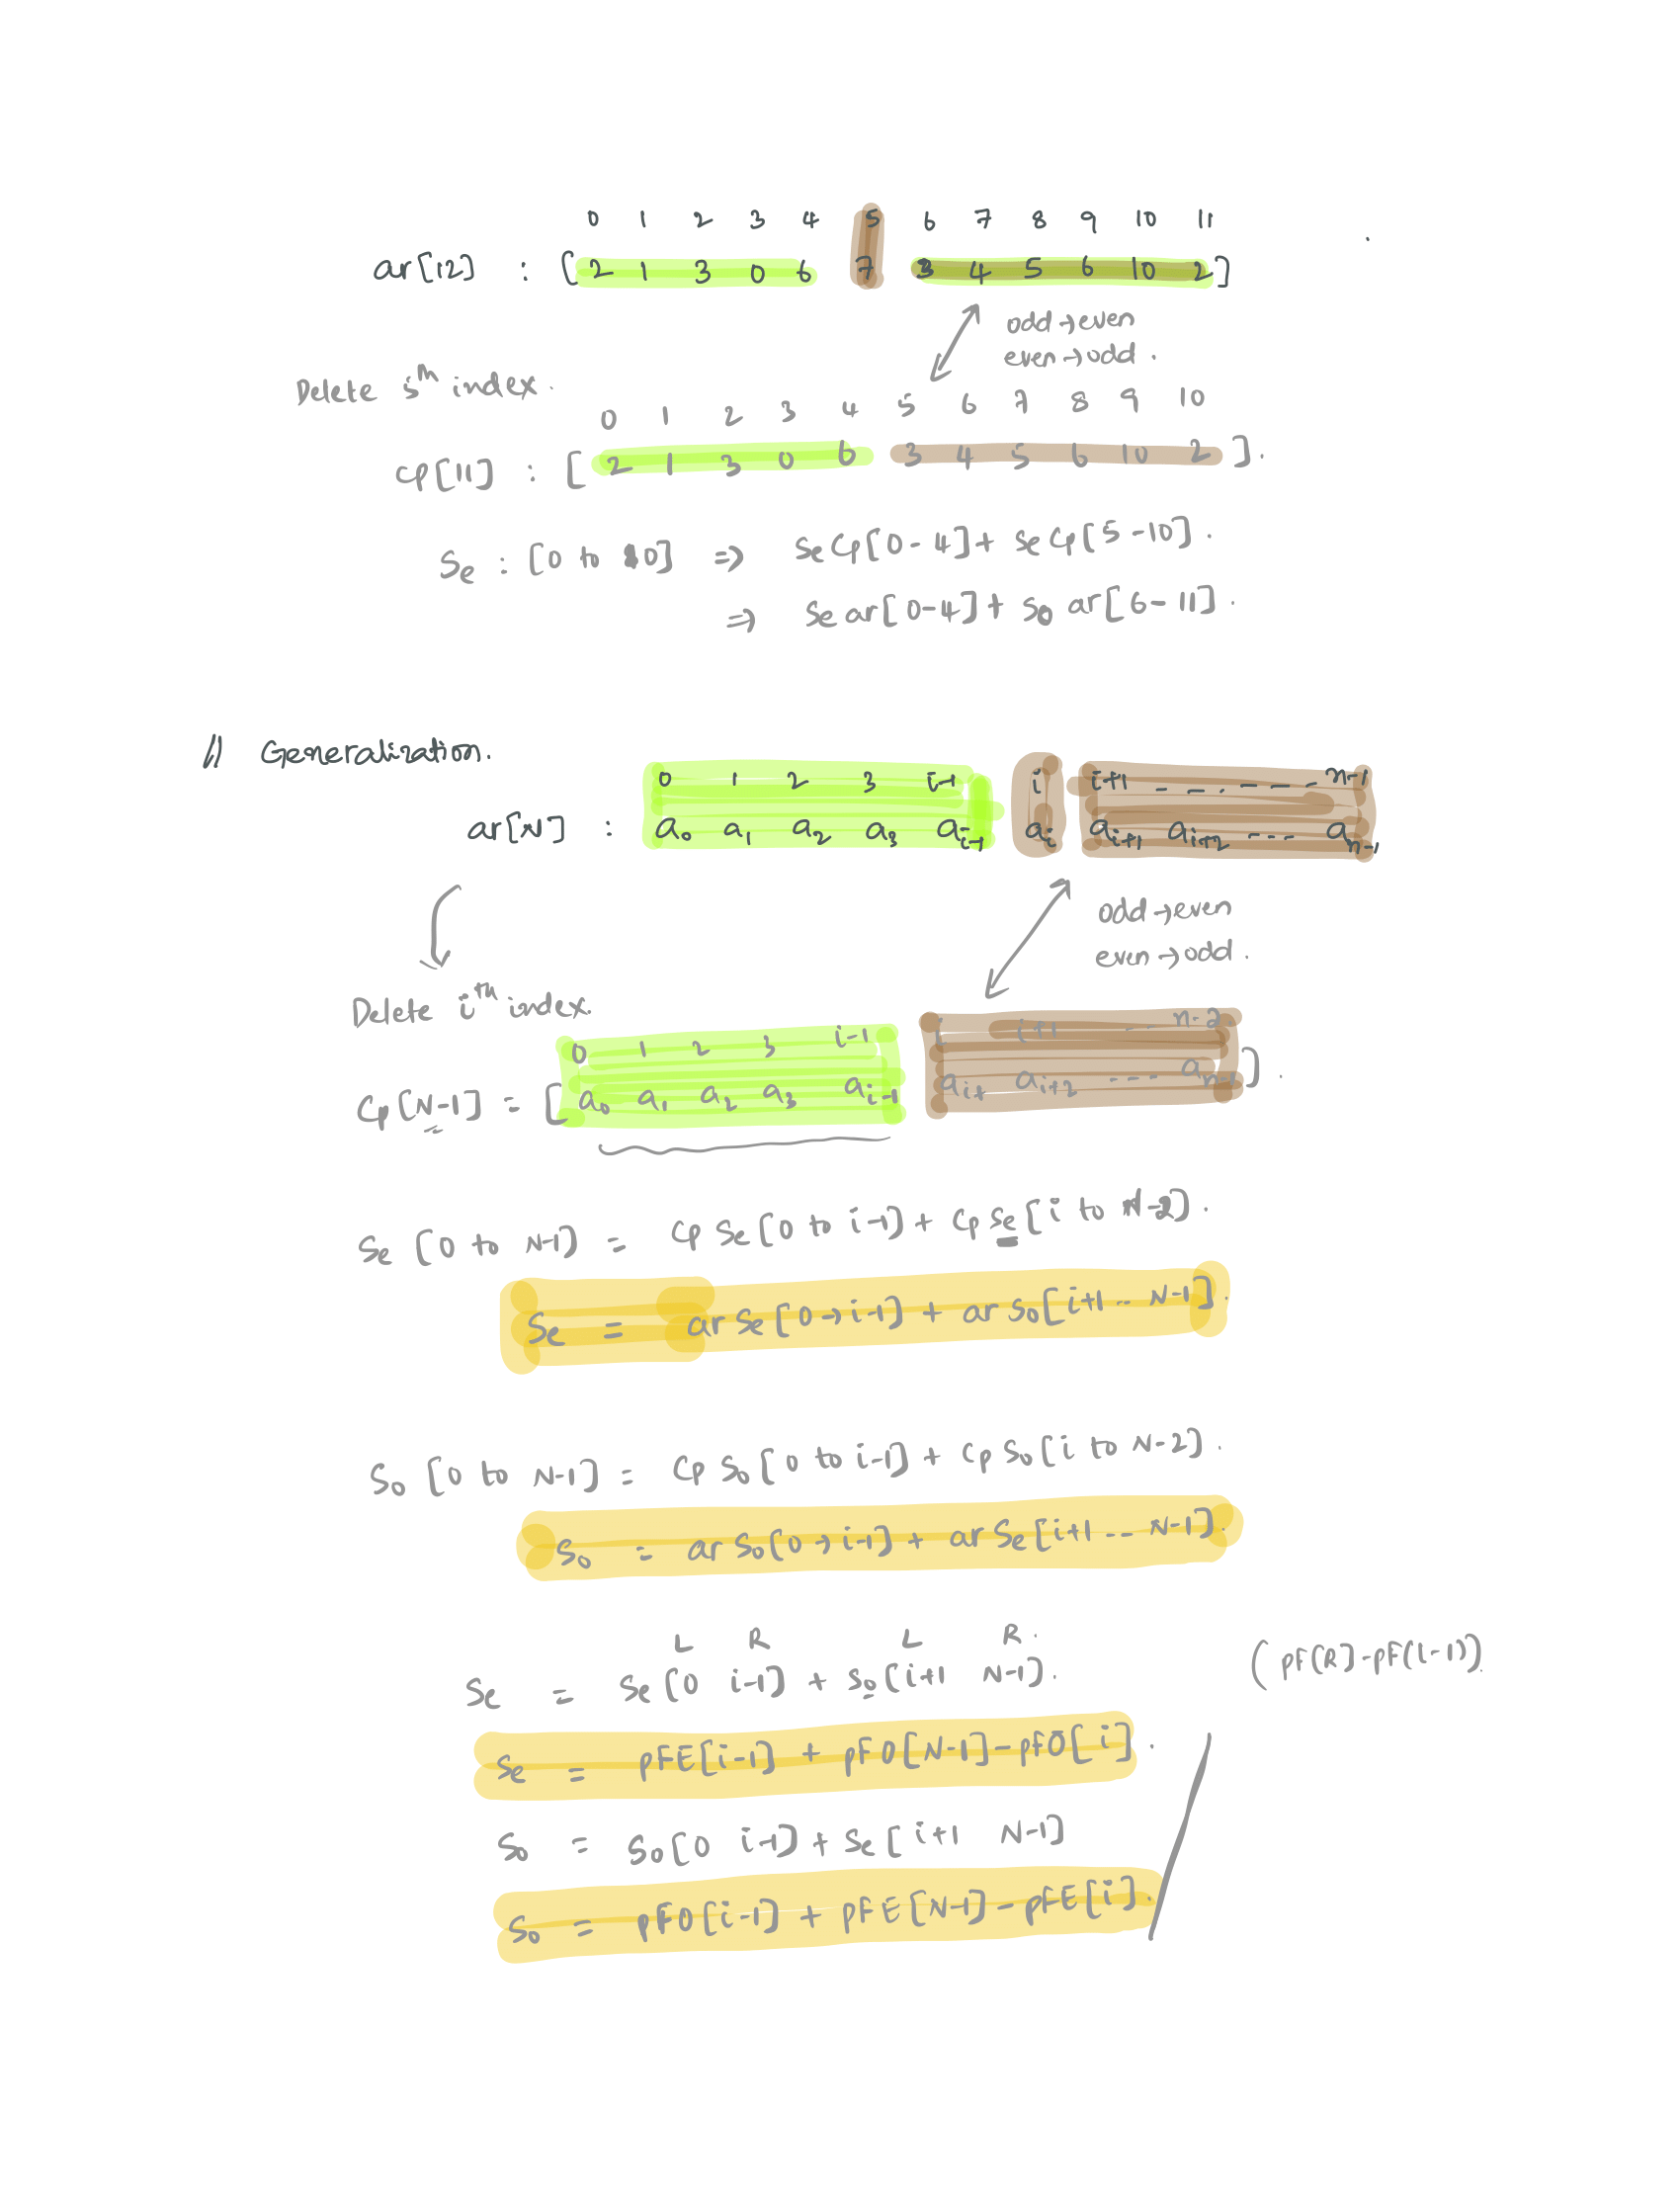 0 1 2 3 4 5 6 7 8 9 10 11
ar[12] : [2 1 3 0 6 7 3 4 5 6 10 2]
odd→even
even→odd.
Delete 5th index.
0 1 2 3 4 5 6 7 8 9 10
cp[11] : [2 1 3 0 6 3 4 5 6 10 2].
Se : [0 to 10] ⇒ Se cp[0-4] + Se cp[5-10].
⇒ Se ar[0-4] + So ar[6-11].
// Generalization.
0 1 2 3 i-1 i i+1 - - . - - - n-1
ar[N] : a0 a1 a2 a3 ai-1 ai ai+1 ai+2 --- an-1
odd→even
even→odd.
Delete ith index.
0 1 2 3 i-1 i i+1 - - - n-2
Cp[N-1] = [a0 a1 a2 a3 ai-1 ai+ ai+2 ---- an-1].
Se [0 to N-1] = Cp Se[0 to i-1] + Cp Se[i to N-2].
Se = ar Se[0→i-1] + ar So[i+1 -- N-1].
So [0 to N-1] = Cp So[0 to i-1] + Cp So[i to N-2].
So = ar So[0→i-1] + ar Se[i+1 -- N-1].
L R L R.
Se = Se[0 i-1] + So[i+1 N-1]. (pF[R]-pF(l-1))
Se = pFE[i-1] + pFO[N-1] - pFO[i].
So = So[0 i-1] + Se[i+1 N-1]
So = pFO[i-1] + pFE[N-1] - pFE[i].